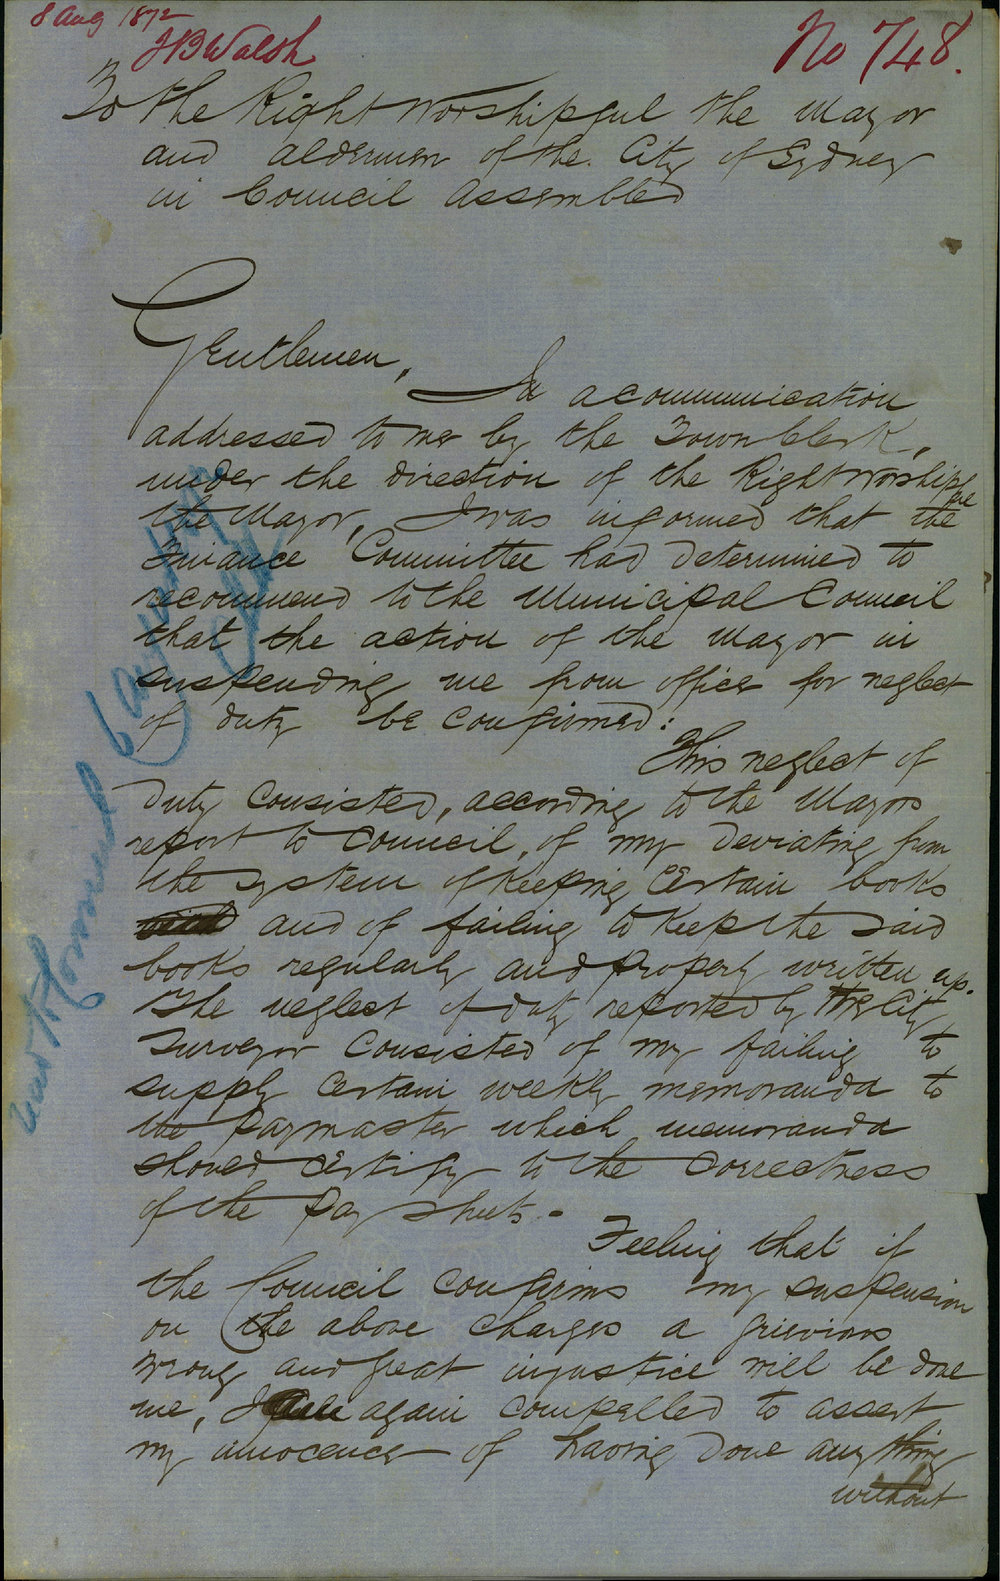 8 Aug 1872
J B Walsh
No 748.
To the Right Worshipful the Mayor
and aldermen of the City of Sydney
in Council Assembled
Gentlemen,
In a communication
addressed to me by the Town Clerk,
under the direction of the Right Worshipful
the Mayor, I was informed that the
Finance Committee had determined to
recommend to the Municipal Council
that the action of the Mayor in
suspending me from office for neglect
of duty be confirmed:
This neglect of
duty consisted, according to the Mayors
report to Council, of my deviating from
the system of keeping certain books
and of failing to keep the said
books regularly and properly written up.
The neglect of duty reported by the City
Surveyor consisted of my failing to
supply certain weekly memoranda to
the paymaster which memoranda
should certify to the correctness
of the pay sheets. -
Feeling that if
the Council confirms my suspension
on the above charges a grievious
wrong and great injustice will be done
me, I am again compelled to assert
my innocence of having done anything
without